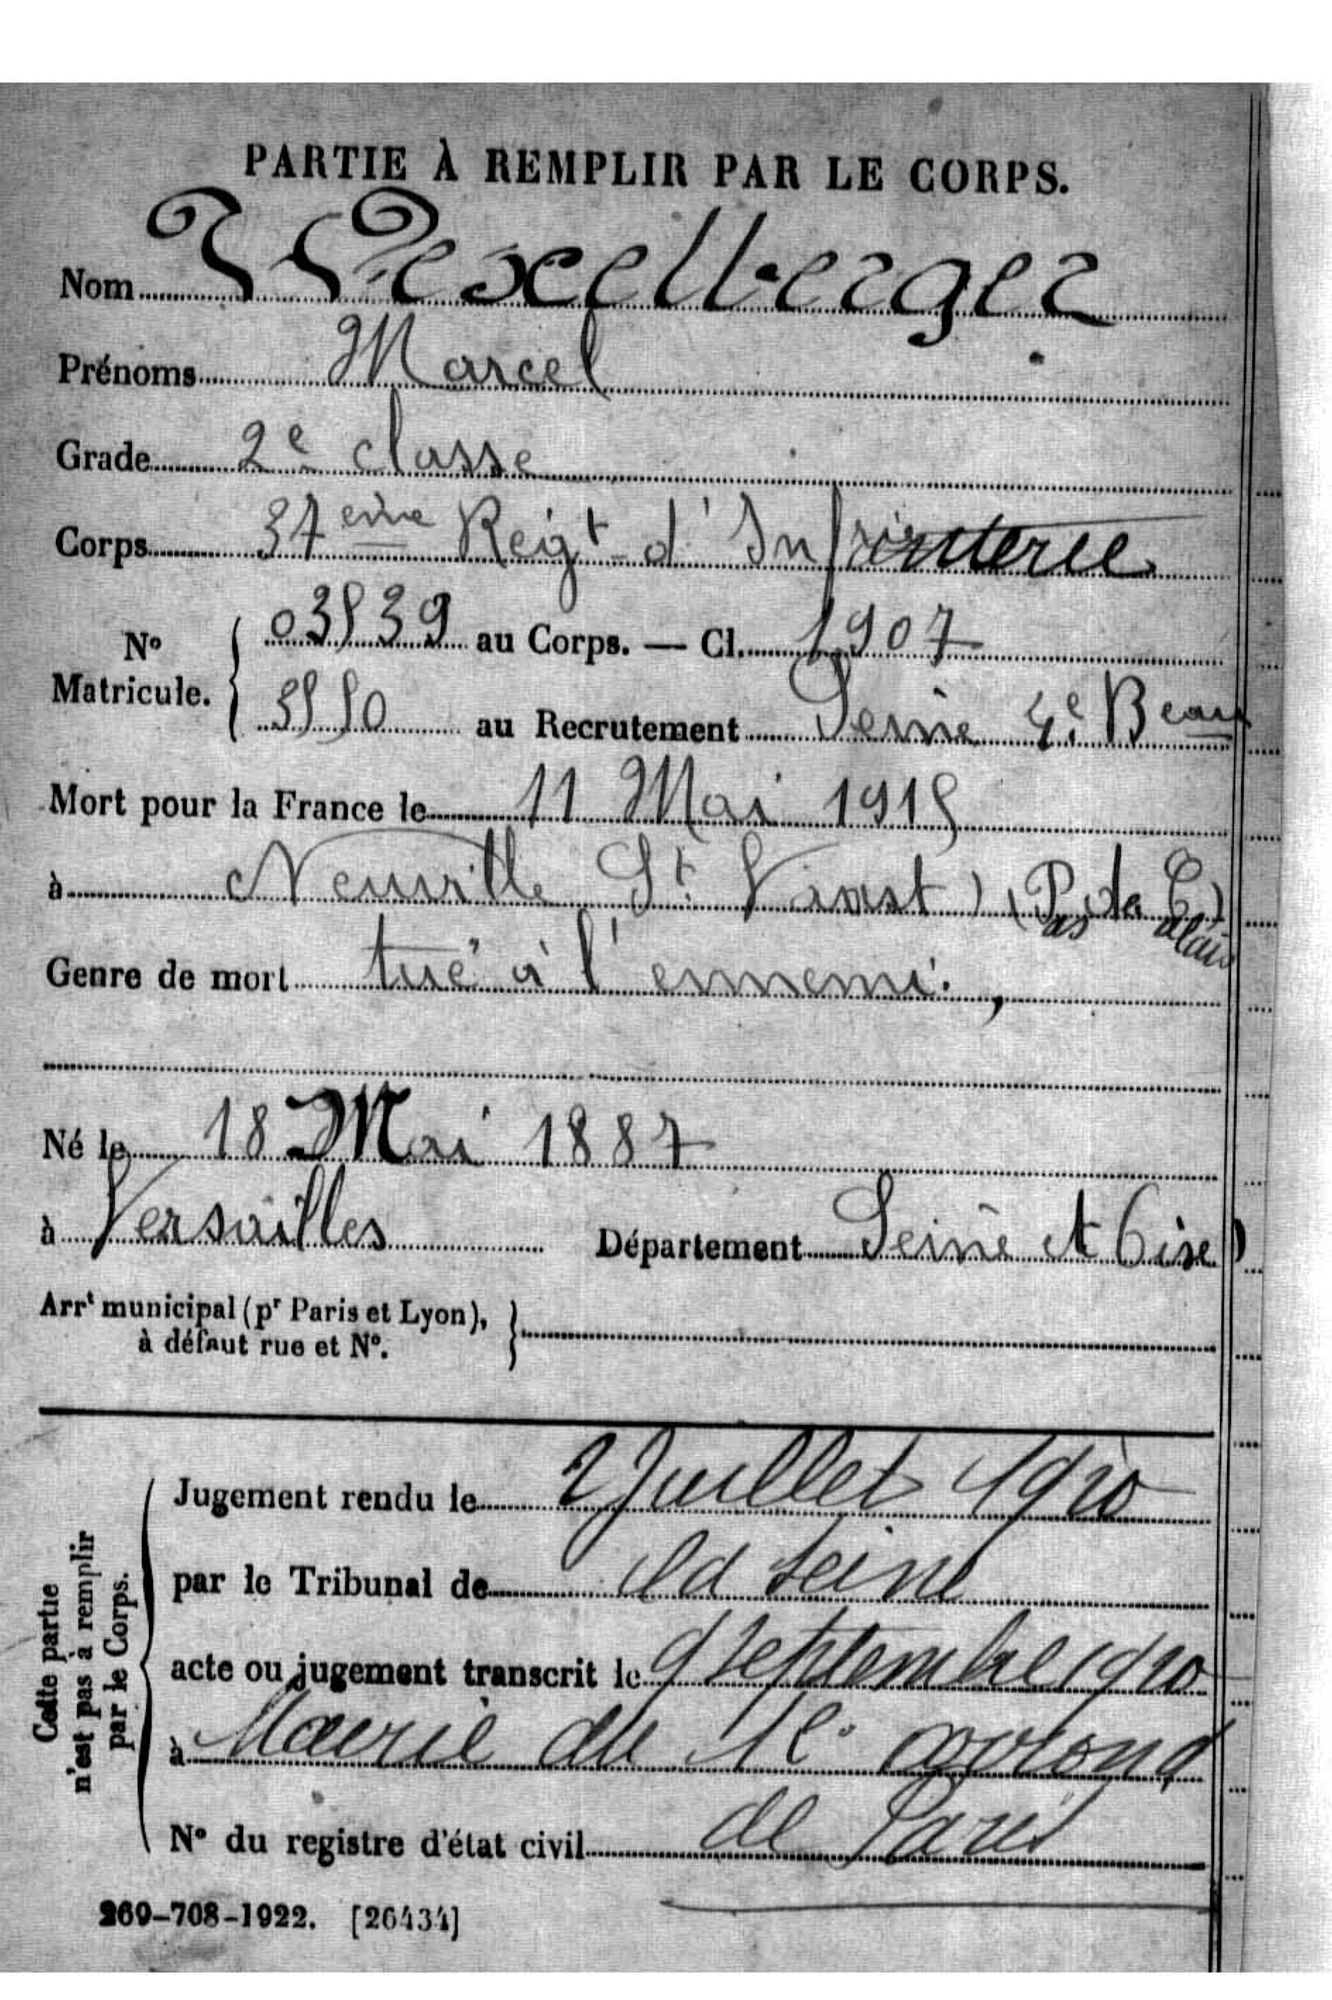 PARTIE À REMPLIR PAR LE CORPS.
Nom Wexelberger
Prénoms Marcel
Grade 2e classe
Corps 37ème Reigt d'Infanterie
No Matricule. { 03539 au Corps. — Cl. 1907
5550 au Recrutement Seine 4e Beau
Mort pour la France le 11 Mai 1915
à Neuville St Vaast (Pas de Calais)
Genre de mort tué à l'ennemi.,
Né le 18 Mai 1887
à Versailles Département Seine et Oise)
Arrt municipal (pr Paris et Lyon),
à défaut rue et No. }
Cette partie
n'est pas à remplir
par le Corps.
Jugement rendu le 2 Juillet 1920
par le Tribunal de la Seine
acte ou jugement transcrit le 9 Septembre 1920
à Mairie du 1e arrond
de Paris
No du registre d'état civil
269-708-1922. [26434]